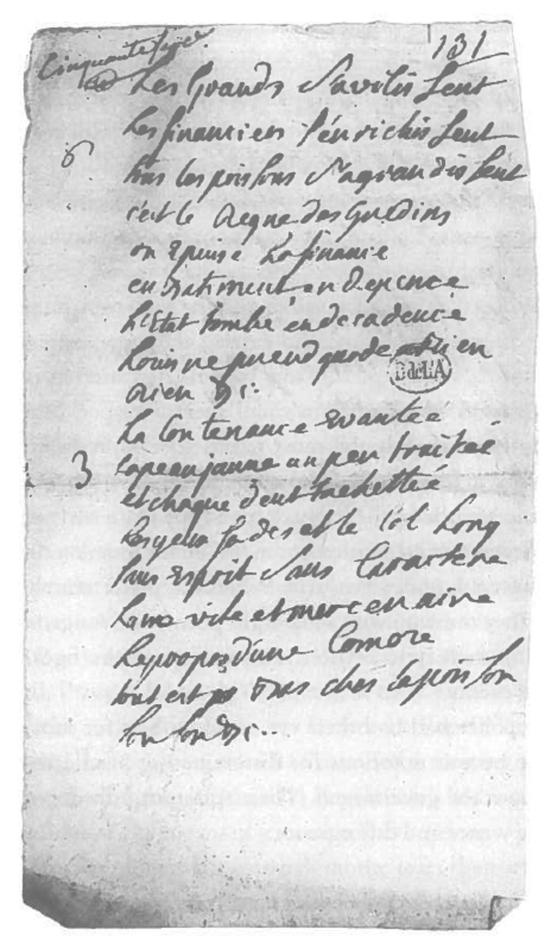 131
Les Grands S'avilis sent
Les financiers s'enrichis sent
6
tous les poissons s'agrandis sent
c'est le Regne des Guredins
on Epuise La finance
en batiment en Depence
L'Etat tombe en decadence
Louis ne prend garde a rien
Rien &c.
La Contenance Evantee
3
la peau jaune un peu truitee
et chaque dent tachettee
les yeux fades et le col Long
Sans Esprit Sans Caractere
Lame vile et mercenaire
Le propos d'une Comere
tout est bas ches la poisson
son son &c..
B de L'A